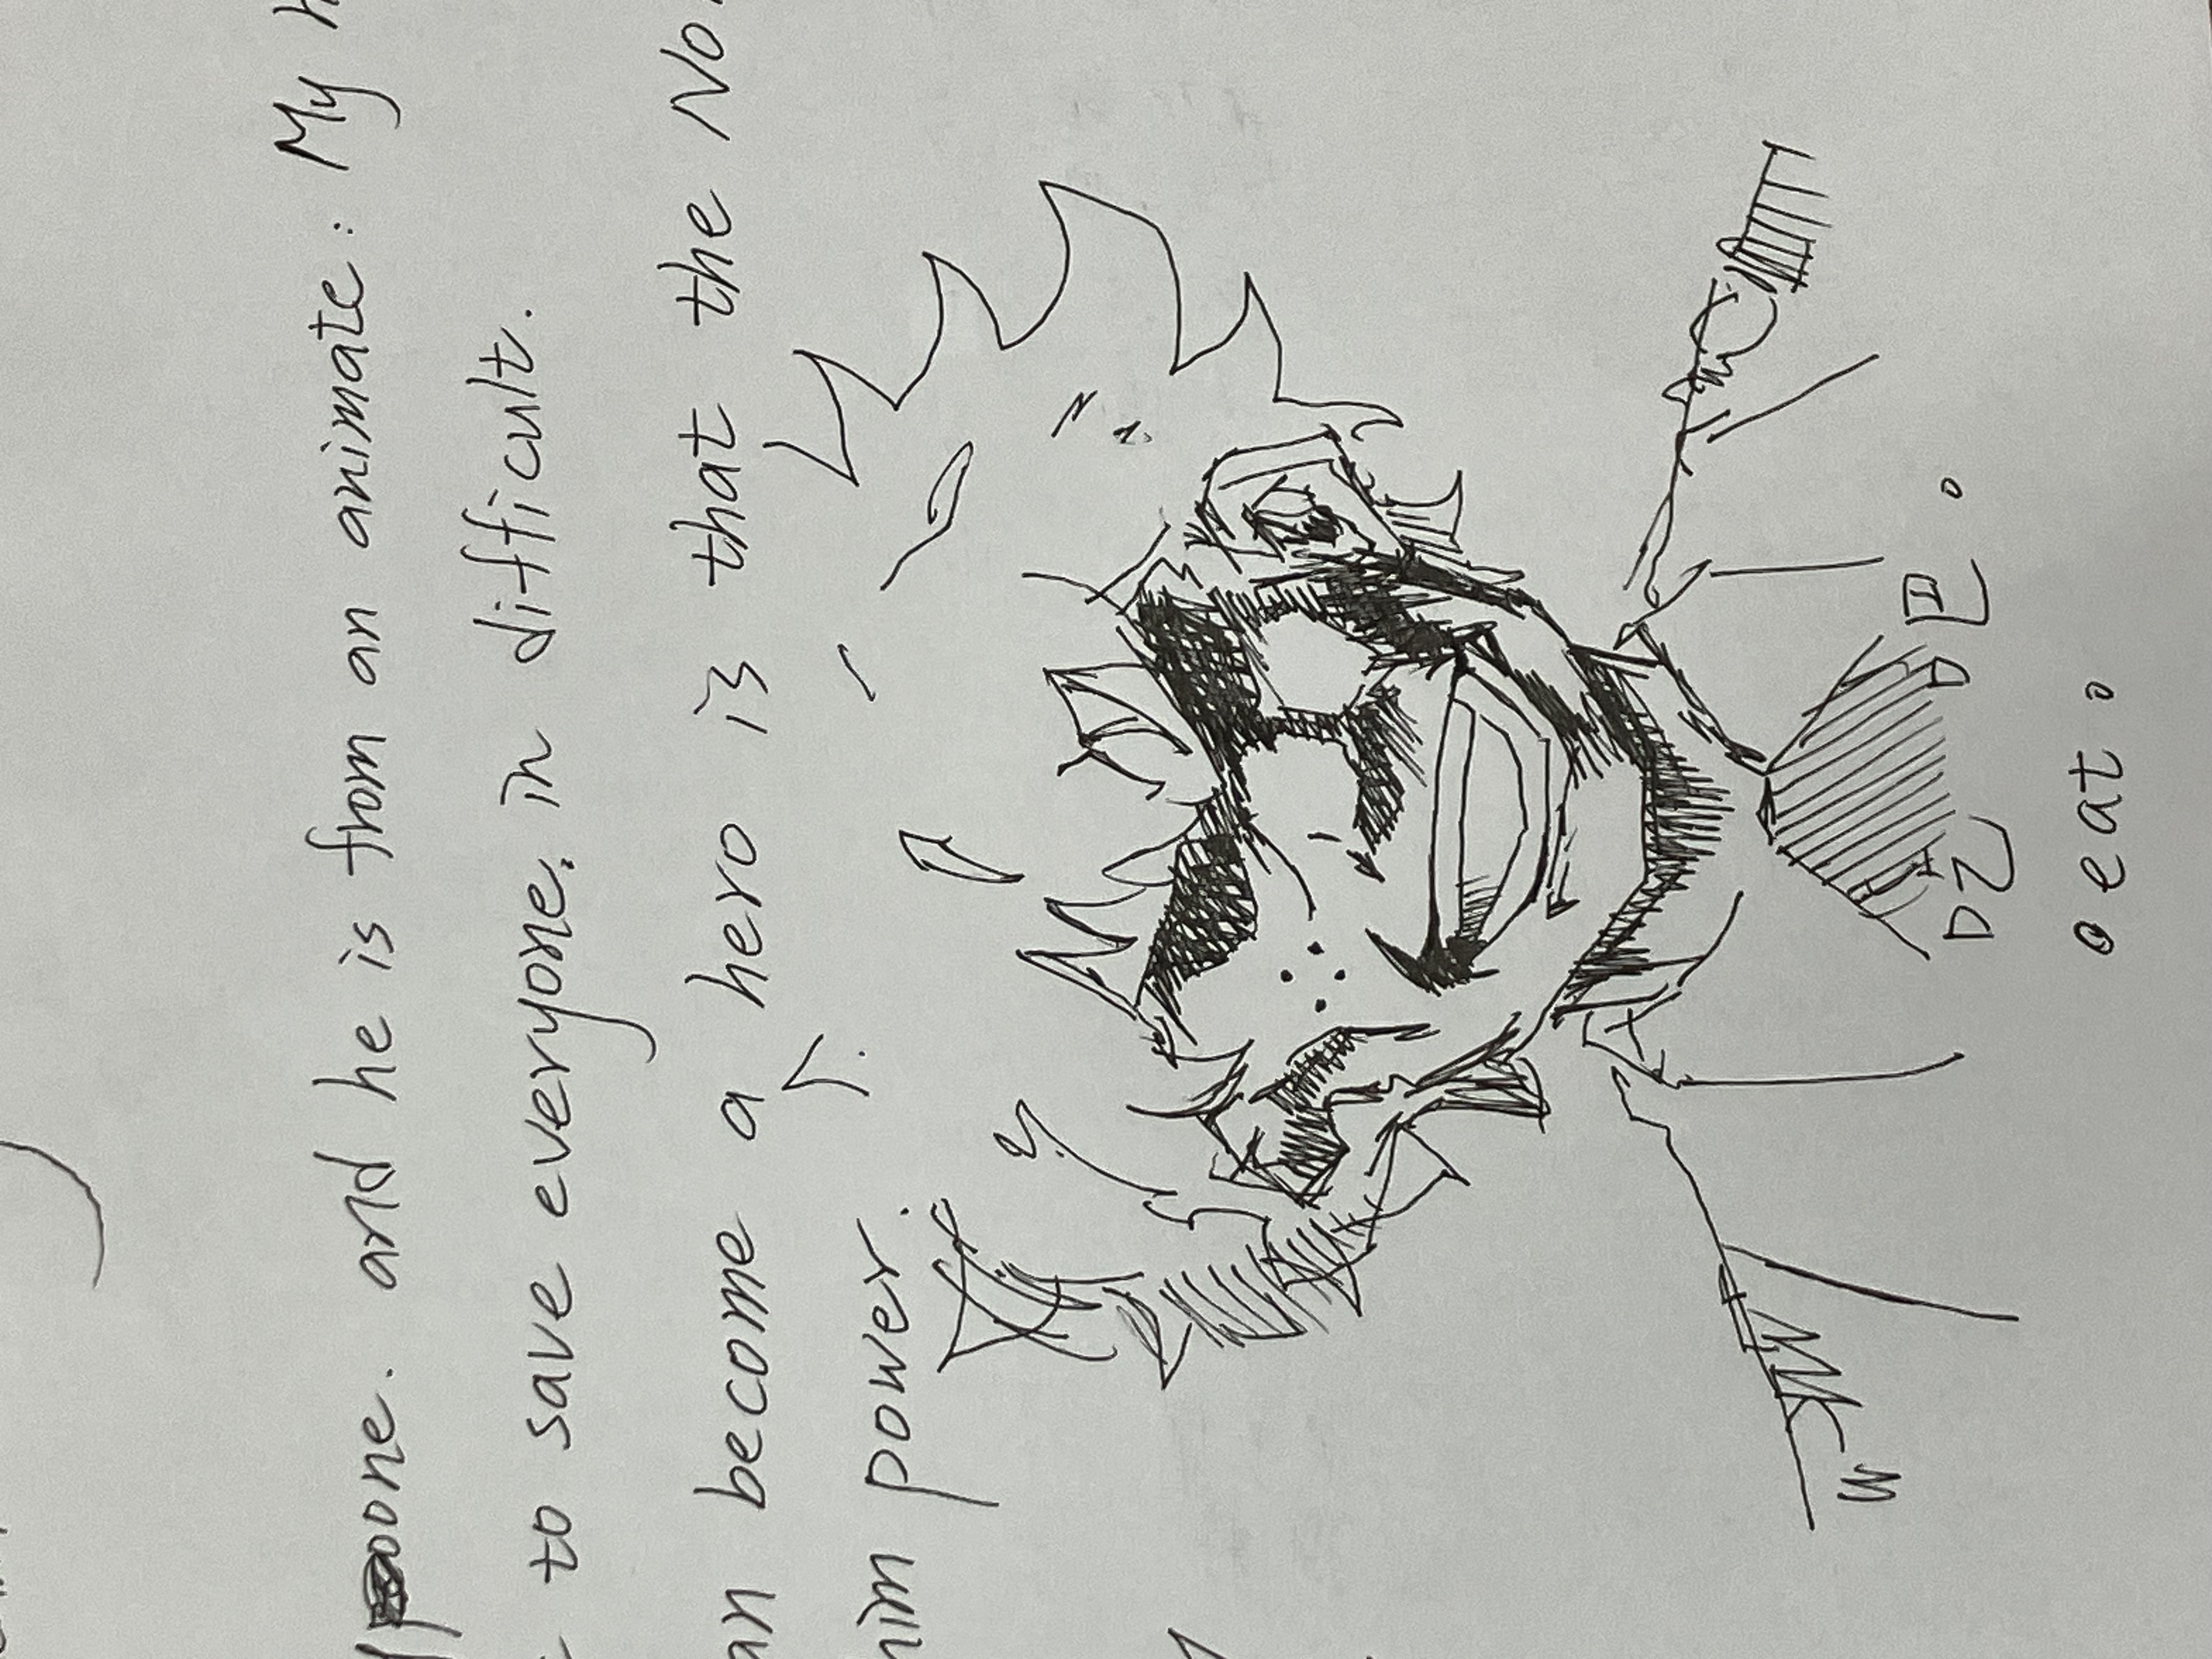 one. and he is from an animate: My h
to save everyone. in difficult.
an become a hero is that the No.
him power.
吃吧。
eat.